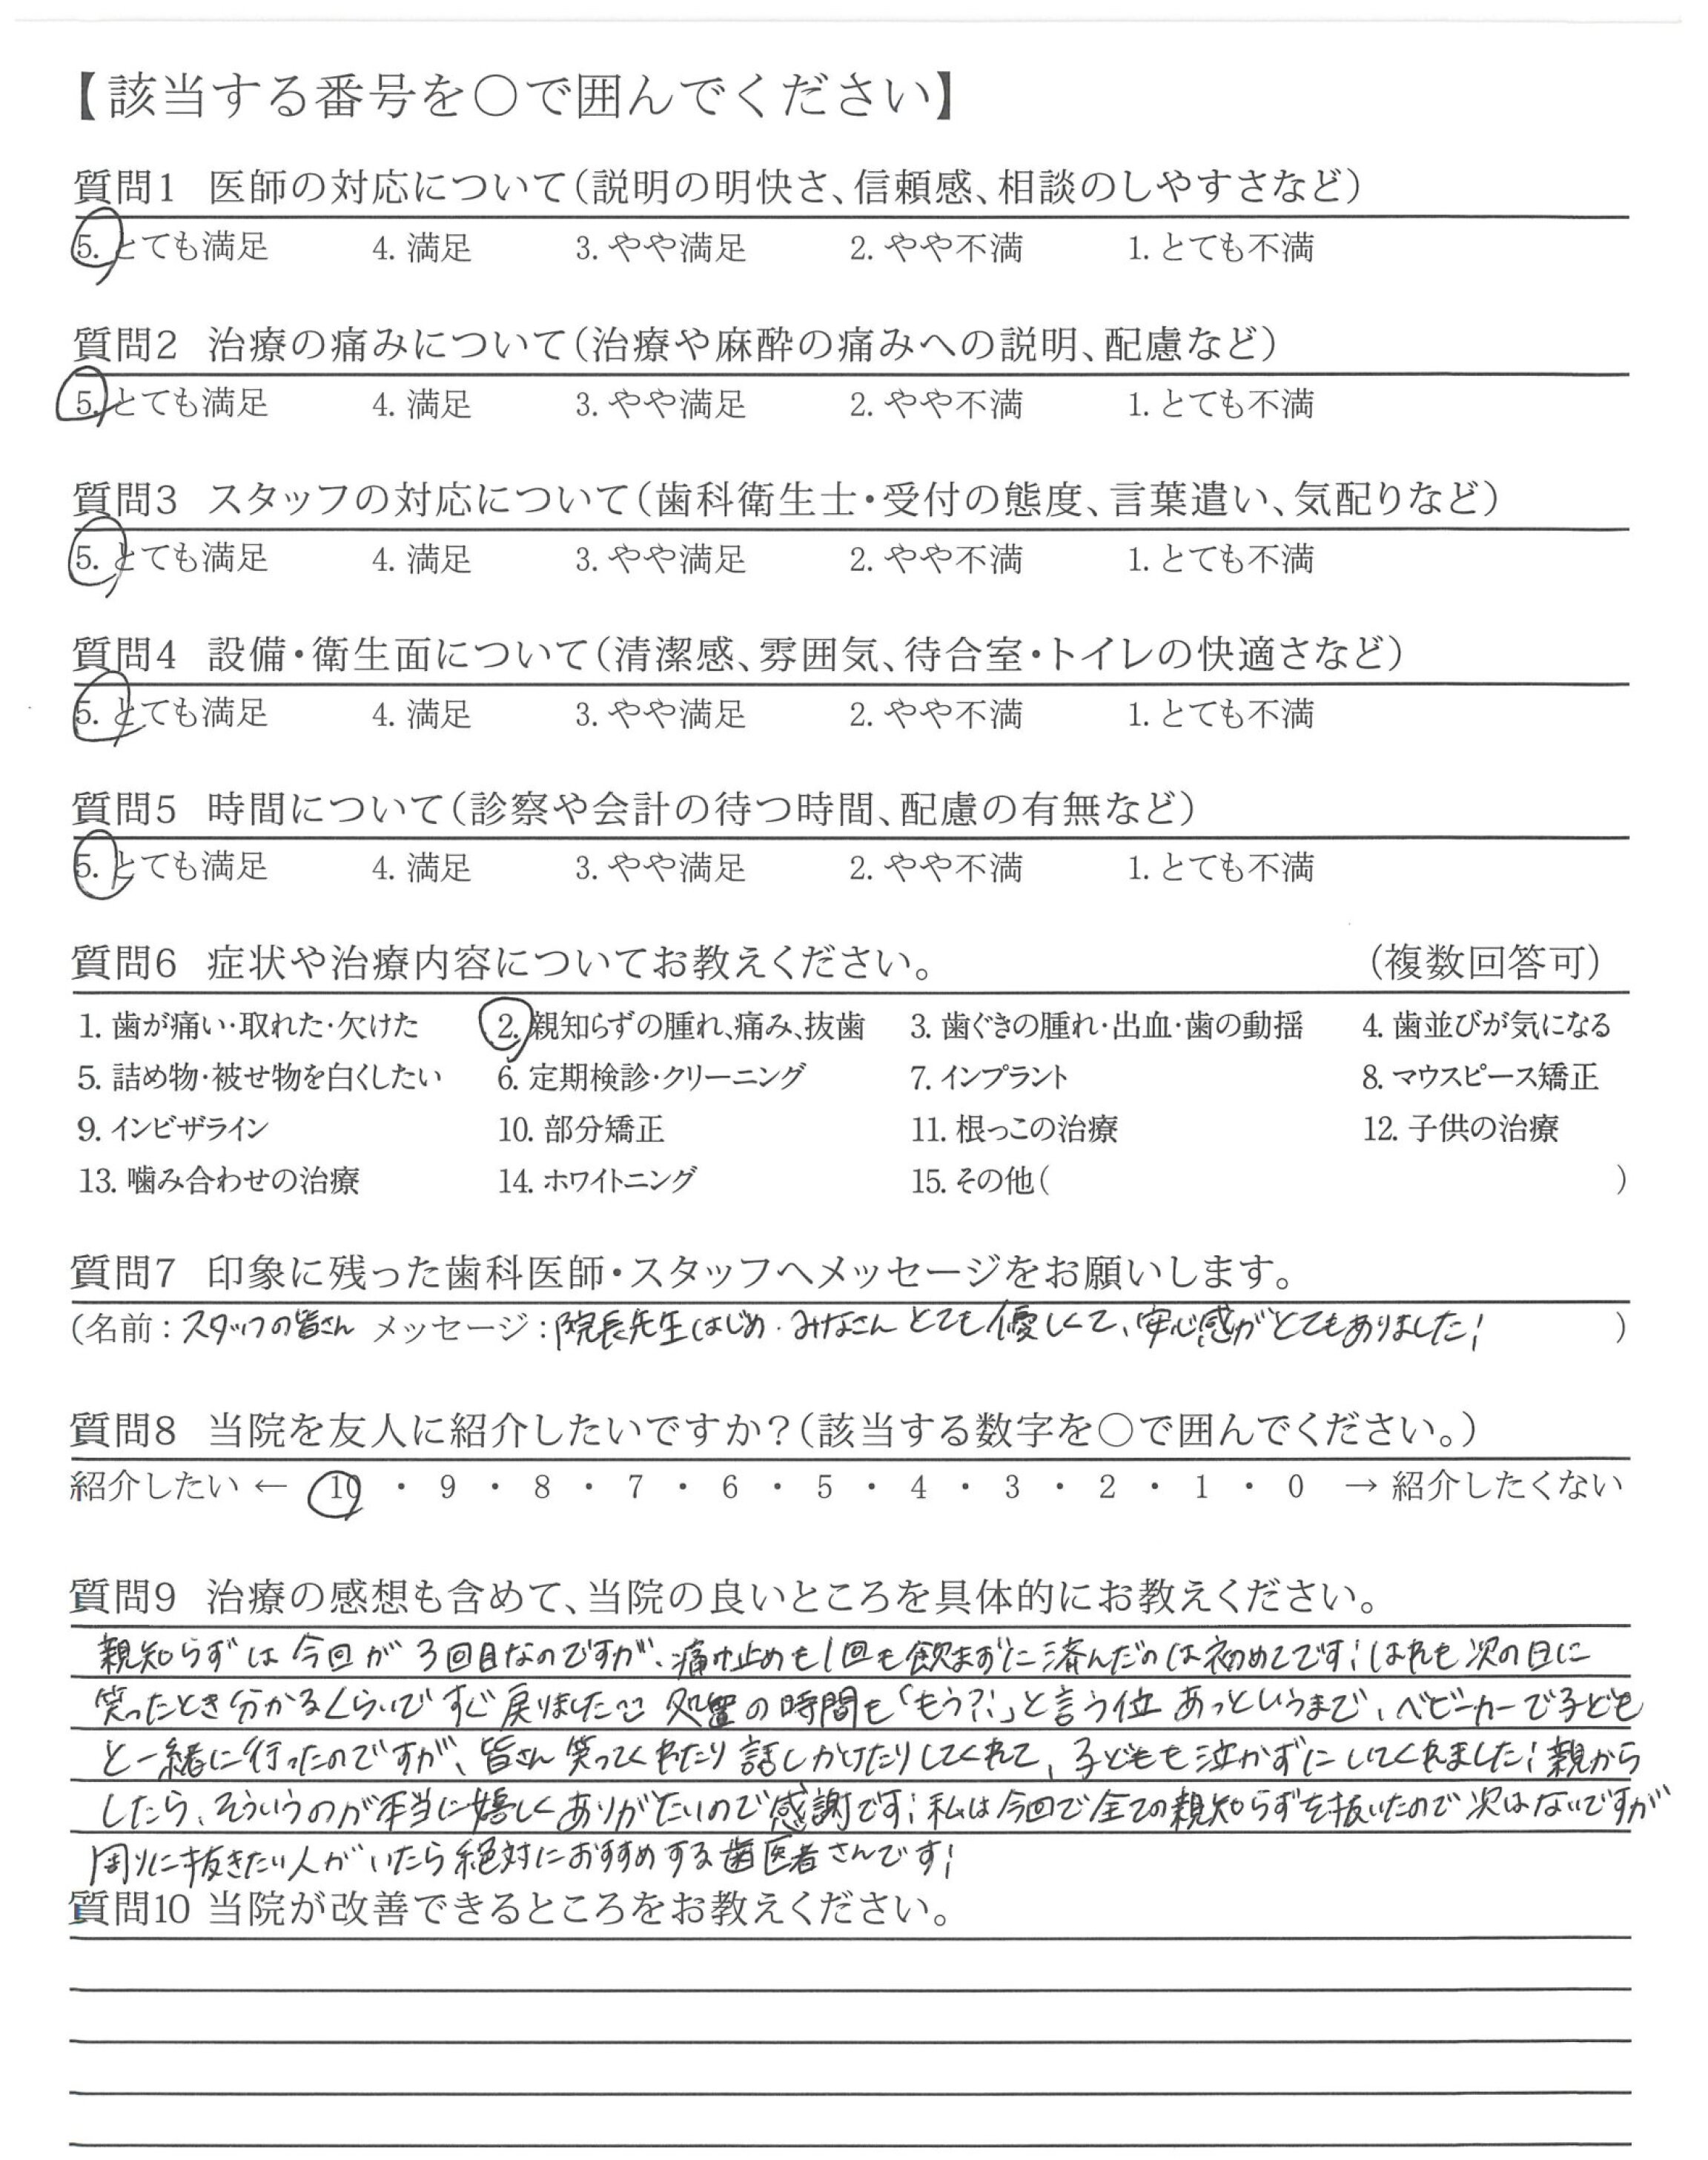 【該当する番号を○で囲んでください】
質問1 医師の対応について（説明の明快さ、信頼感、相談のしやすさなど）
5. とても満足 4. 満足 3. やや満足 2. やや不満 1. とても不満
質問2 治療の痛みについて（治療や麻酔の痛みへの説明、配慮など）
5. とても満足 4. 満足 3. やや満足 2. やや不満 1. とても不満
質問3 スタッフの対応について（歯科衛生士・受付の態度、言葉遣い、気配りなど）
5. とても満足 4. 満足 3. やや満足 2. やや不満 1. とても不満
質問4 設備・衛生面について（清潔感、雰囲気、待合室・トイレの快適さなど）
5. とても満足 4. 満足 3. やや満足 2. やや不満 1. とても不満
質問5 時間について（診察や会計の待つ時間、配慮の有無など）
5. とても満足 4. 満足 3. やや満足 2. やや不満 1. とても不満
質問6 症状や治療内容についてお教えください。 （複数回答可）
1. 歯が痛い・取れた・欠けた 2. 親知らずの腫れ、痛み、抜歯 3. 歯ぐきの腫れ・出血・歯の動揺 4. 歯並びが気になる
5. 詰め物・被せ物を白くしたい 6. 定期検診・クリーニング 7. インプラント 8. マウスピース矯正
9. インビザライン 10. 部分矯正 11. 根っこの治療 12. 子供の治療
13. 噛み合わせの治療 14. ホワイトニング 15. その他（ ）
質問7 印象に残った歯科医師・スタッフへメッセージをお願いします。
（名前：スタッフの皆さん メッセージ：院長先生はじめ、みなさんとても優しくて、安心感がとてもありました！ ）
質問8 当院を友人に紹介したいですか？（該当する数字を○で囲んでください。）
紹介したい ← 10 ・ 9 ・ 8 ・ 7 ・ 6 ・ 5 ・ 4 ・ 3 ・ 2 ・ 1 ・ 0 → 紹介したくない
質問9 治療の感想も含めて、当院の良いところを具体的にお教えください。
親知らずは今回が3回目なのですが、痛み止めも1回も飲まずに済んだのは初めてです！はれも次の日に
笑ったとき分かるくらいですぐ戻りました 処置の時間も「もう？！」と言う位あっというまで、ベビーカーで子ども
と一緒に行ったのですが、皆さん笑ってくれたり話しかけたりしてくれて、子どもも泣かずにいてくれました！親から
したら、そういうのが本当に嬉しくありがたいので感謝です！私は今回で全ての親知らずを抜いたので次はないですが
周りに抜きたい人がいたら絶対におすすめする歯医者さんです！
質問10 当院が改善できるところをお教えください。